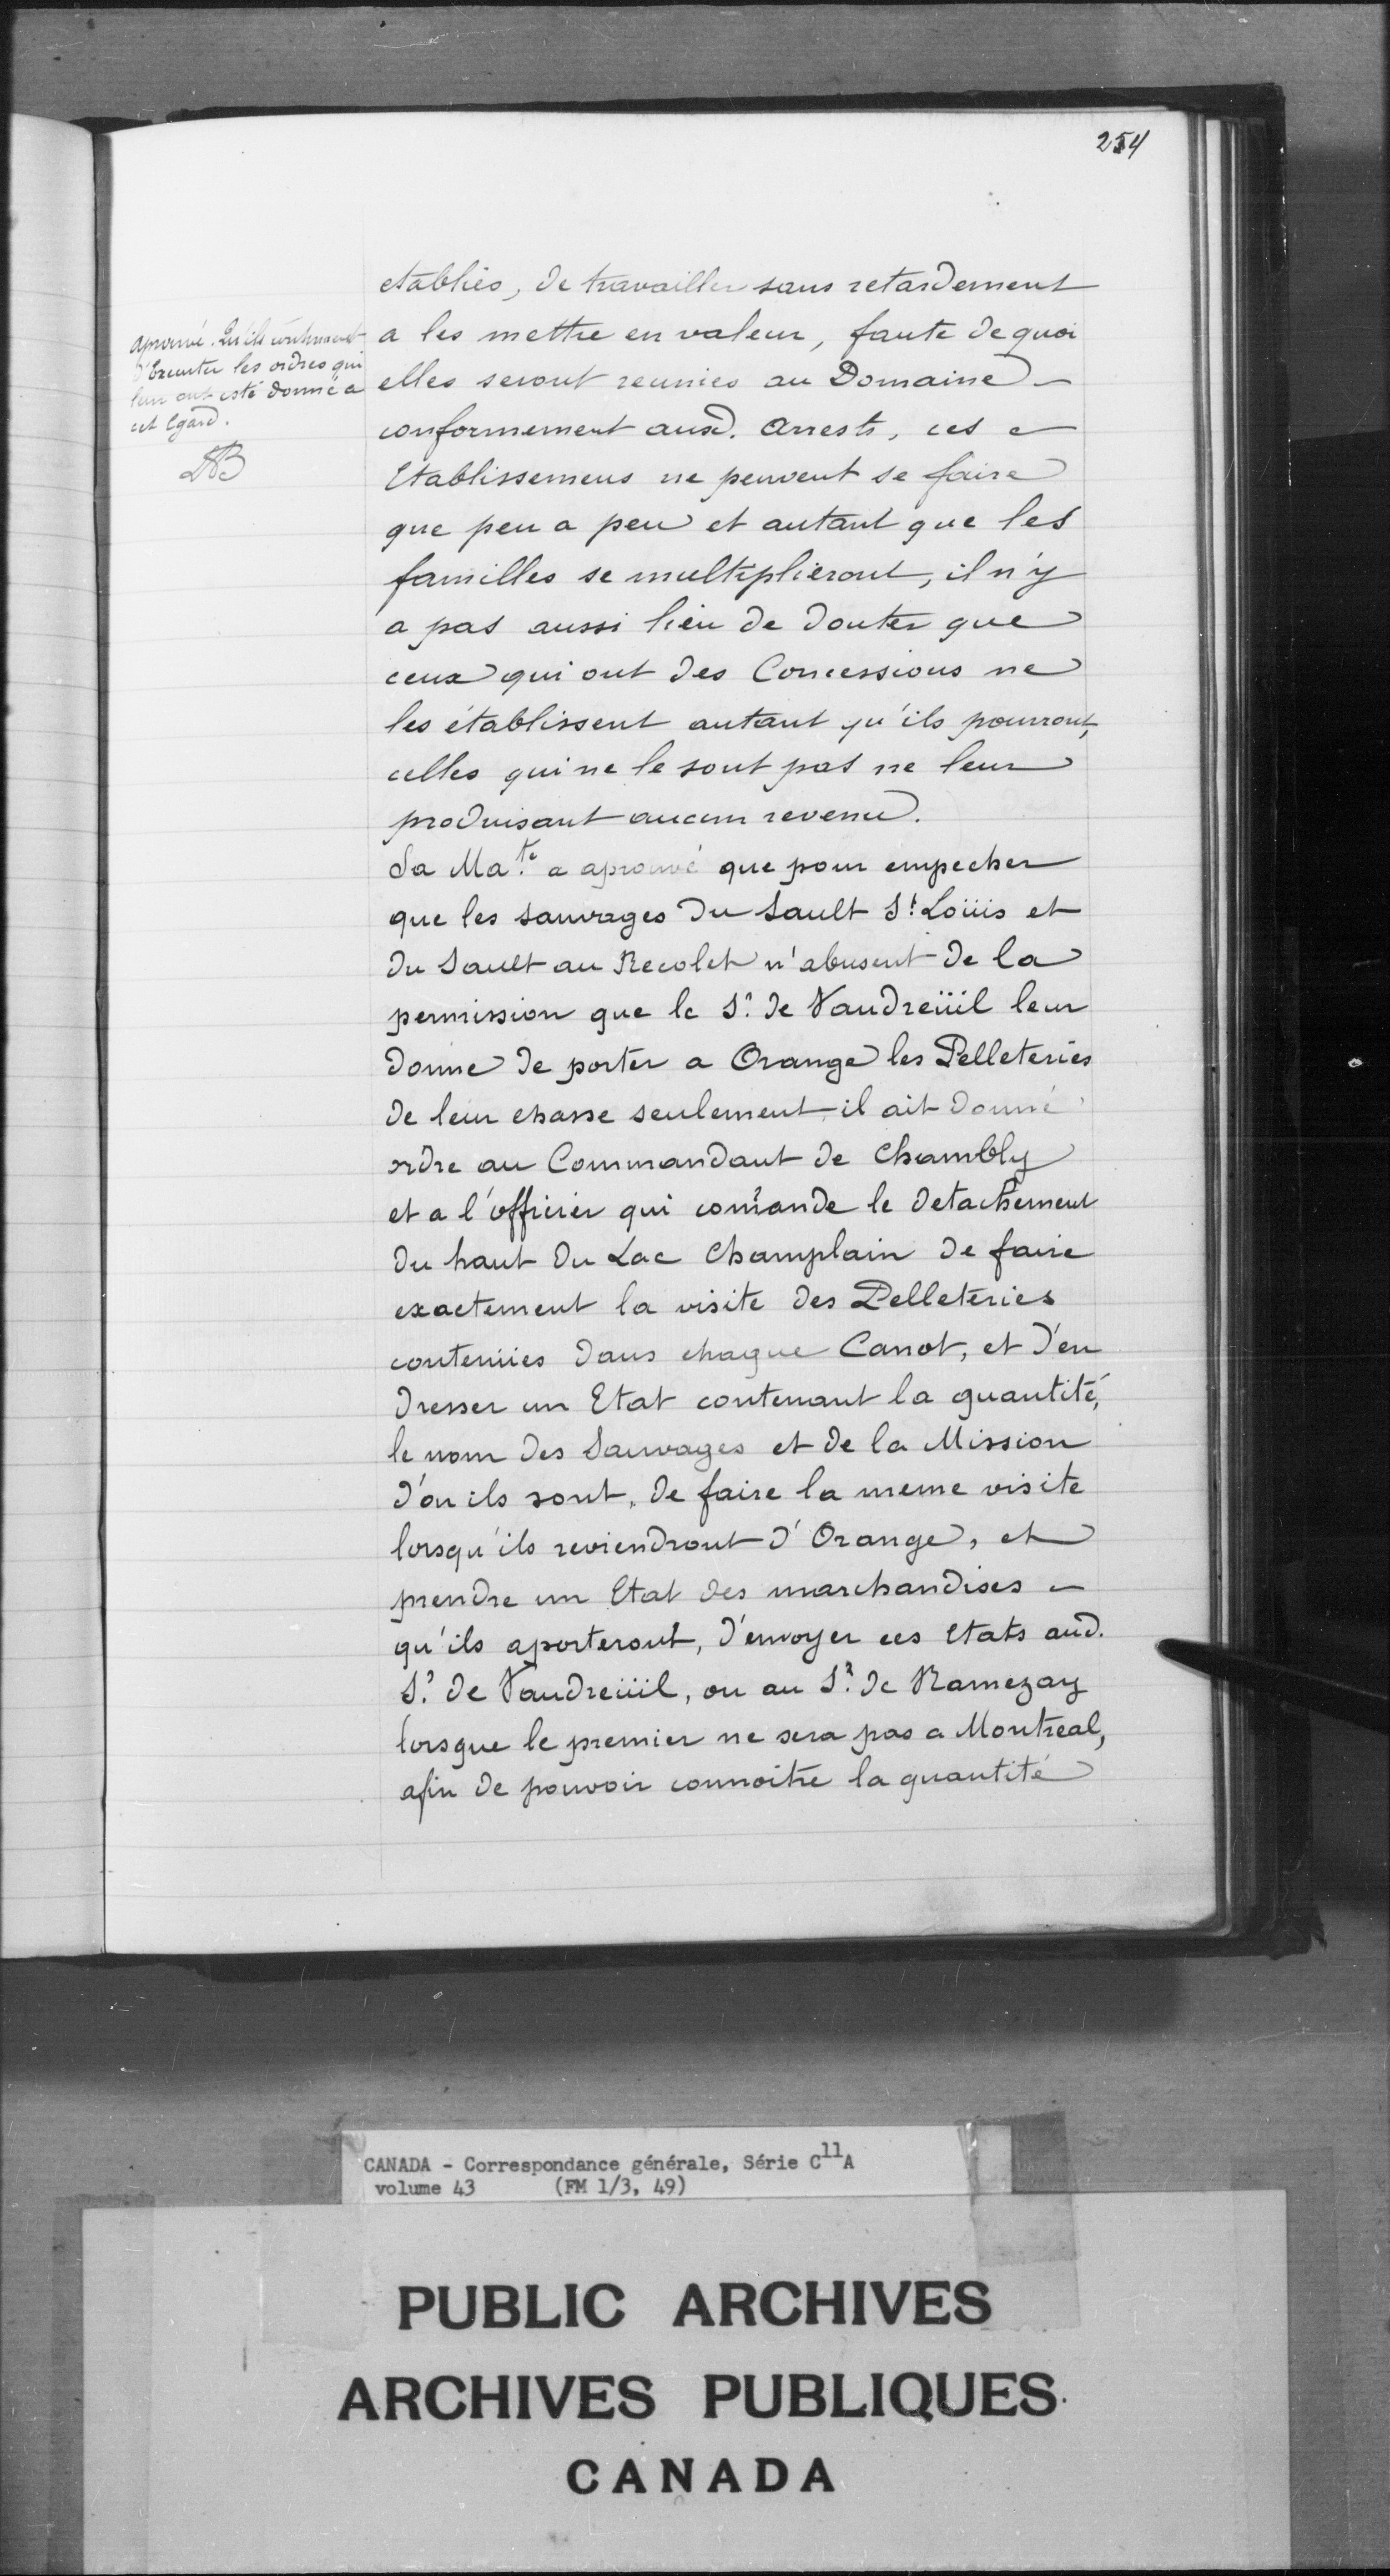 254
etablies, de travailler sans retardement
a les mettre en valeur, faute de quoi
elles seront reunies au Domaine
conformement auxd. Arrests, ces
Etablissemens ne peuvent se faire
que peu a peu et autant que les
familles se multiplieront, il n'y
a pas aussi lieu de douter que
ceux qui ont des Concessions ne
les établissent autant qu'ils pourront,
celles qui ne le sont pas ne leur
produisant aucun revenu.
aprouvé. Qu'ils continuent
d'Executer les ordres qui
leur ont esté donné a
cet Egard.
Sa Ma.té a aprouvé que pour empecher
que les sauvages du Sault St. Loüis et
du Sault au Recolet n'abusent de la
permission que le Sr. de Vaudreüil leur
donne de porter a Orange les Pelleteries
de leur chasse seulement il ait donné
ordre au Commandant de Chambly
et a l'officier qui comande le detachement
du haut du Lac Champlain de faire
exactement la visite des Pelleteries
contenües dans chaque Canot, et d'en
dresser un Etat contenant la quantité,
le nom des Sauvages et de la Mission
d'ou ils sont, de faire la meme visite
lorsqu'ils reviendront d'Orange, et
prendre un Etat des marchandises
qu'ils aporteront, d'envoyer ces Etats aud.
Sr. de Vaudreüil, ou au Sr. de Ramezay
lorsque le premier ne sera pas a Montreal,
afin de pouvoir connoitre la quantité
CANADA - Correspondance générale, Série C11A
volume 43 (FM 1/3, 49)
PUBLIC ARCHIVES
ARCHIVES PUBLIQUES
CANADA